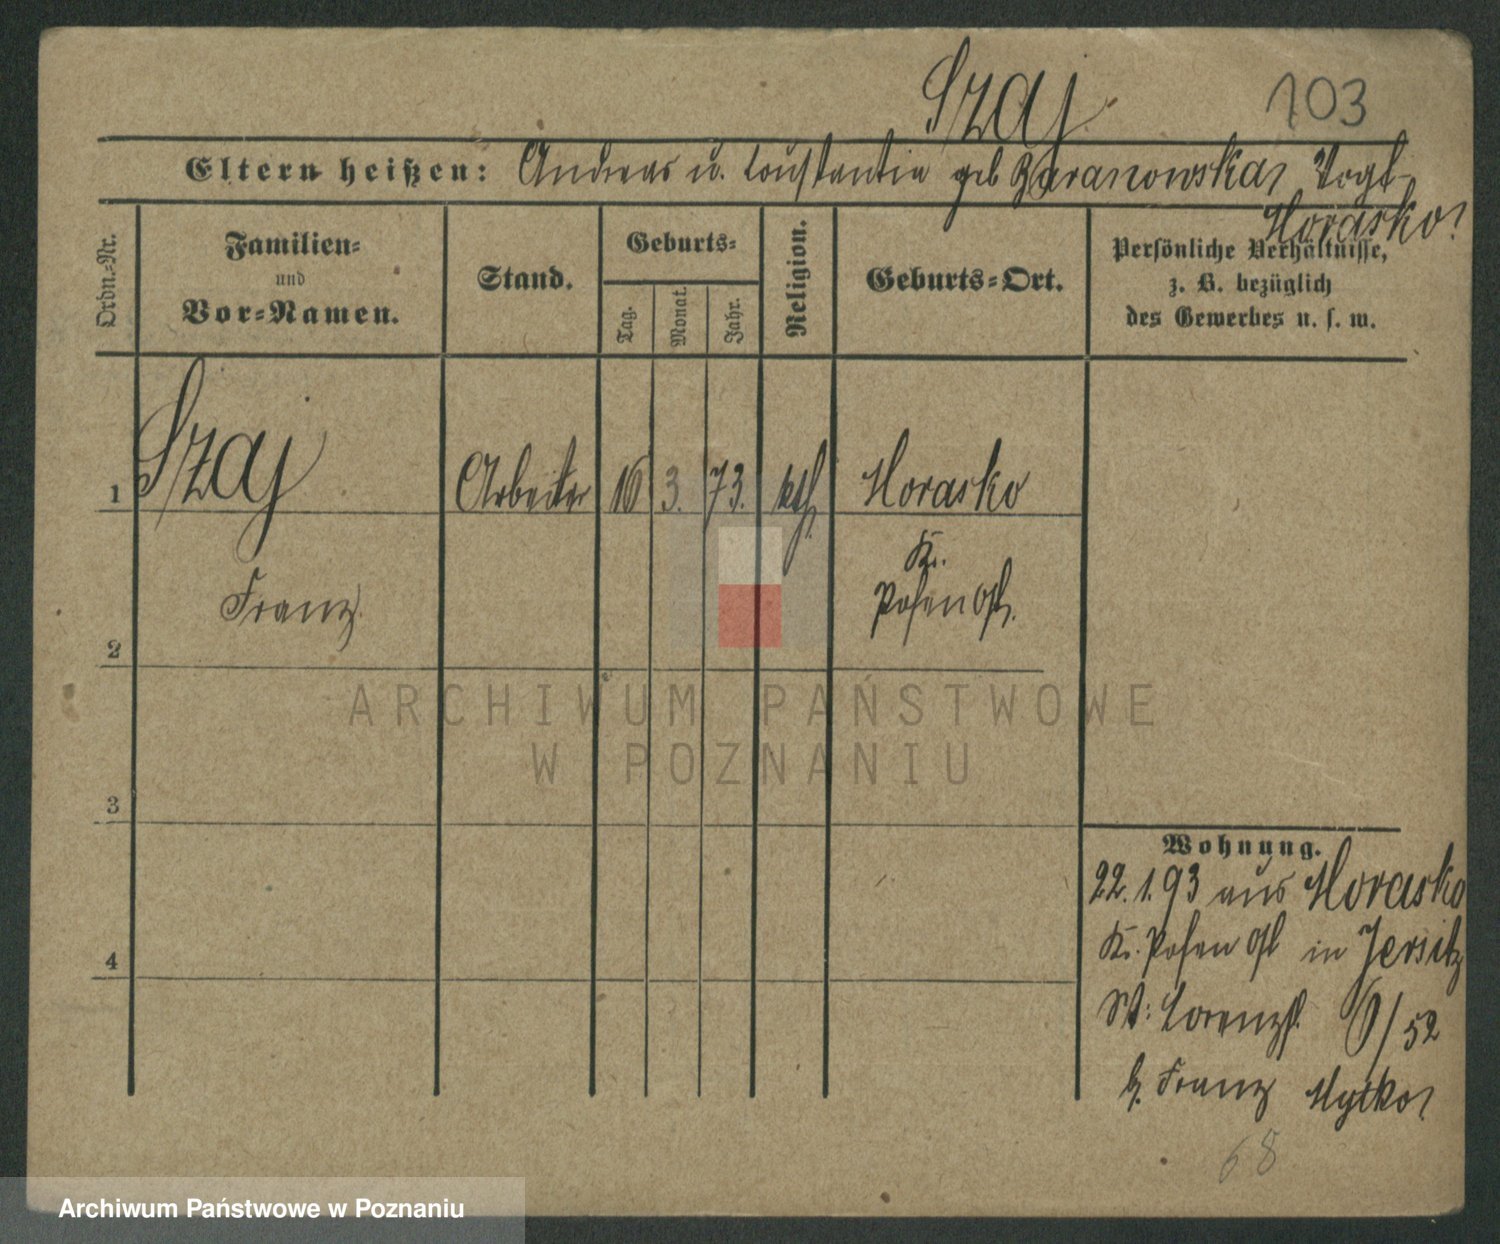 Szaj 103
Eltern heißen: Andreas u. Constantia geb Baranowska, Vogt
Morasko.
Ordn.-Nr.
Familien-
und
Vor-Namen.
Stand.
Geburts-
Tag.
Monat.
Jahr.
Religion.
Geburts-Ort.
Persönliche Verhältnisse,
z. B. bezüglich
des Gewerbes u. s. w.
1 Szaj Arbeiter 16 3. 73. kth. Morasko
Kr.
Franz. Posen Ost.
2
3
4
Wohnung.
22.1.93 aus Morasko
Kr. Posen Ost in Jersitz
St: Lorenzst. 6/52
b. Franz
68
ARCHIWUM PAŃSTWOWE
W POZNANIU
Archiwum Państwowe w Poznaniu